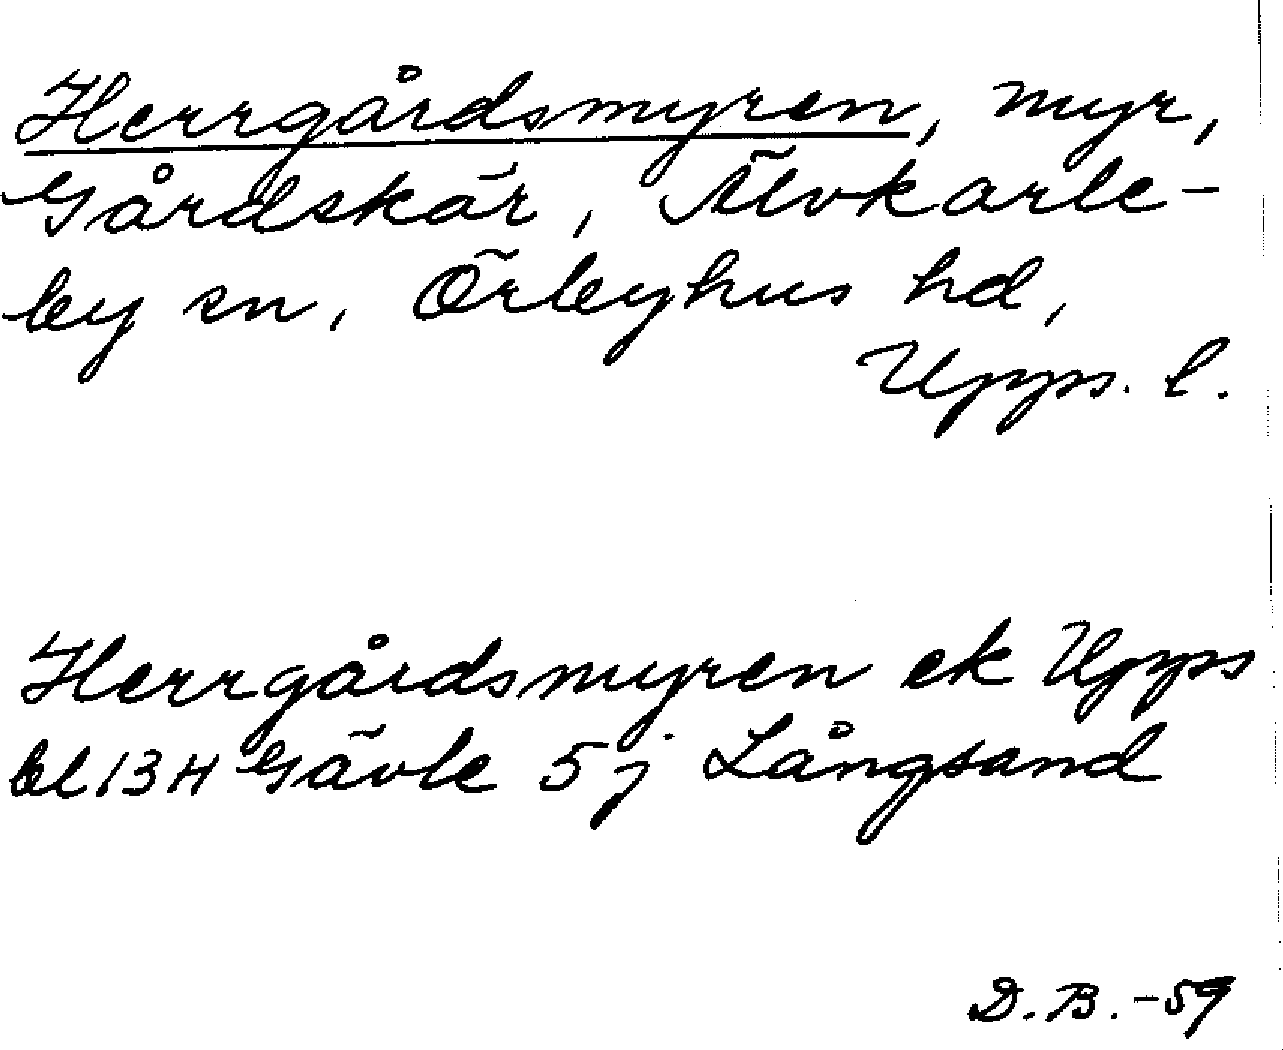 Herrgårdsmyren, myr,
Gårdskär, Älvkarle-
by sn, Örbyhus hd,
Upps. l.
Herrgårdsmyren ek Upps
bl 13 H Gävle 5 j Långsand
D. B. -59